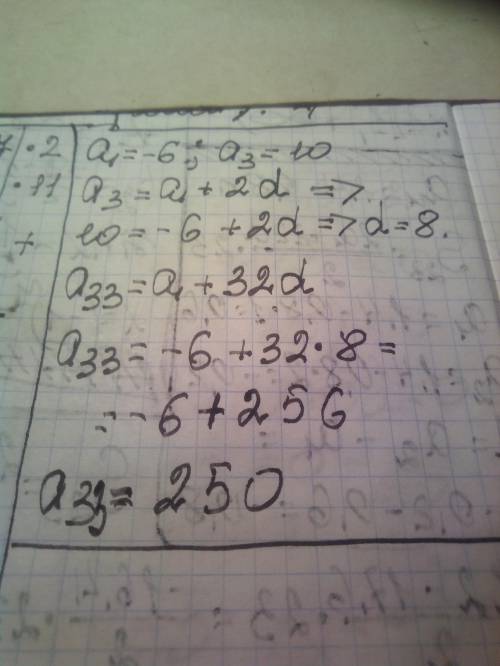 7 · 2
· 11
+
a₁ = -6; a₃ = 10
a₃ = a₁ + 2d =>
10 = -6 + 2d => d = 8.
a₃₃ = a₁ + 32d
a₃₃ = -6 + 32 · 8 =
= -6 + 256
a₃₃ = 250